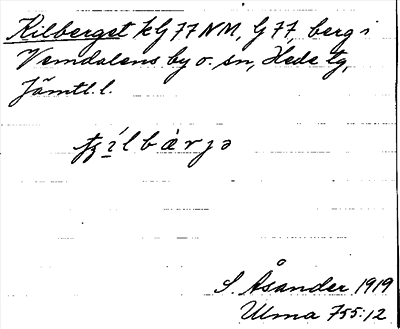 Kilberget kG 77 NM, G 77, berg i
Vemdalens by o. sn, Hede tg,
Jämtl. l.
S. Åsander 1919
Ulma 755:12